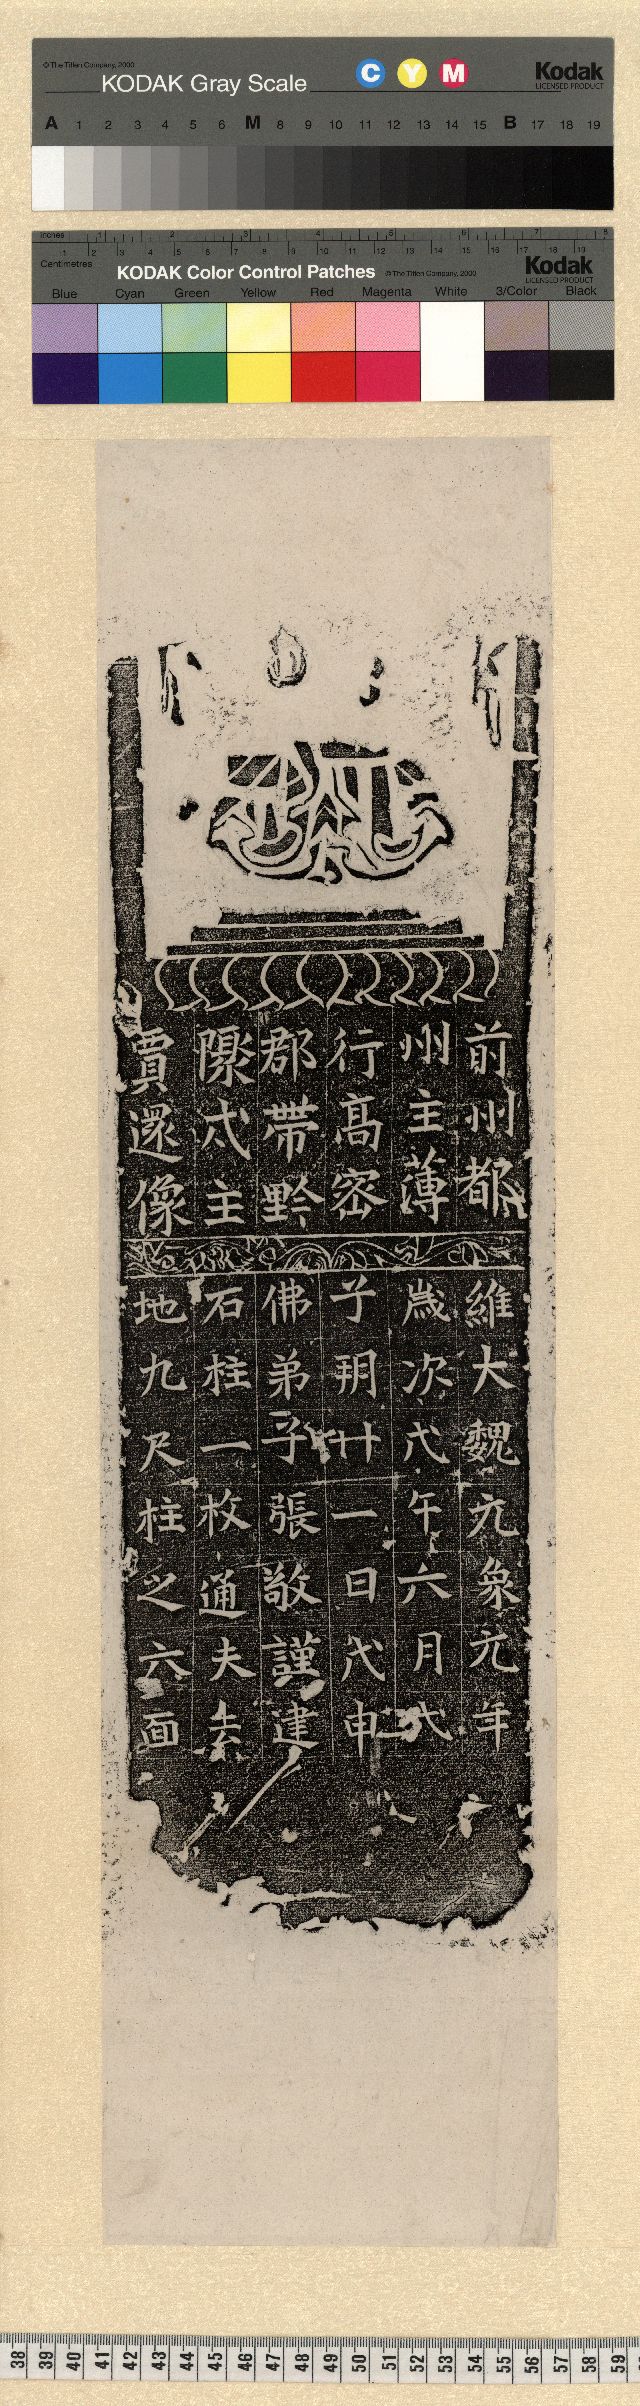 © The Tiffen Company, 2000
KODAK Gray Scale
C Y M
Kodak
LICENSED PRODUCT
A 1 2 3 4 5 6 M 8 9 10 11 12 13 14 15 B 17 18 19
Inches 1 2 3 4 5 6 7 8
Centimetres 1 2 3 4 5 6 7 8 9 10 11 12 13 14 15 16 17 18 19
KODAK Color Control Patches © The Tiffen Company, 2000
Kodak
LICENSED PRODUCT
Blue Cyan Green Yellow Red Magenta White 3/Color Black
前州都
州主薄
行高密
郡帶黔
陬弍主
賈還像
維大魏元象元年
歲次戊午六月戊
子朔廿一日戊申
佛弟子張敬謹建
石柱一枚通夫去
地九尺柱之六面
38 39 40 41 42 43 44 45 46 47 48 49 50 51 52 53 54 55 56 57 58 59